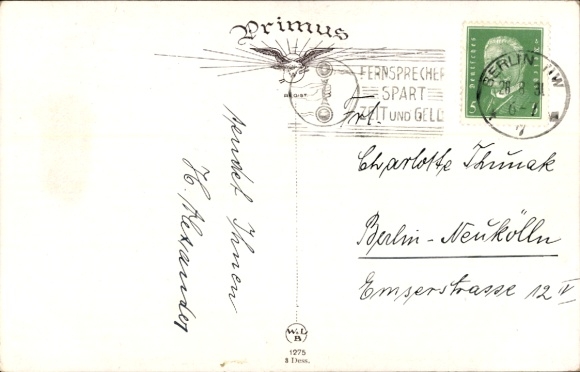 Primus
FERNSPRECHER
SPART
ZEIT UND GELD
DEUTSCHES REICH
5
BERLIN NW
7
sendet Ihnen
H. Alexander
Frl.
Charlotte Thunak
Berlin-Neukölln
Emserstrasse 12 IV
W.L.
B
1275
3 Dess.